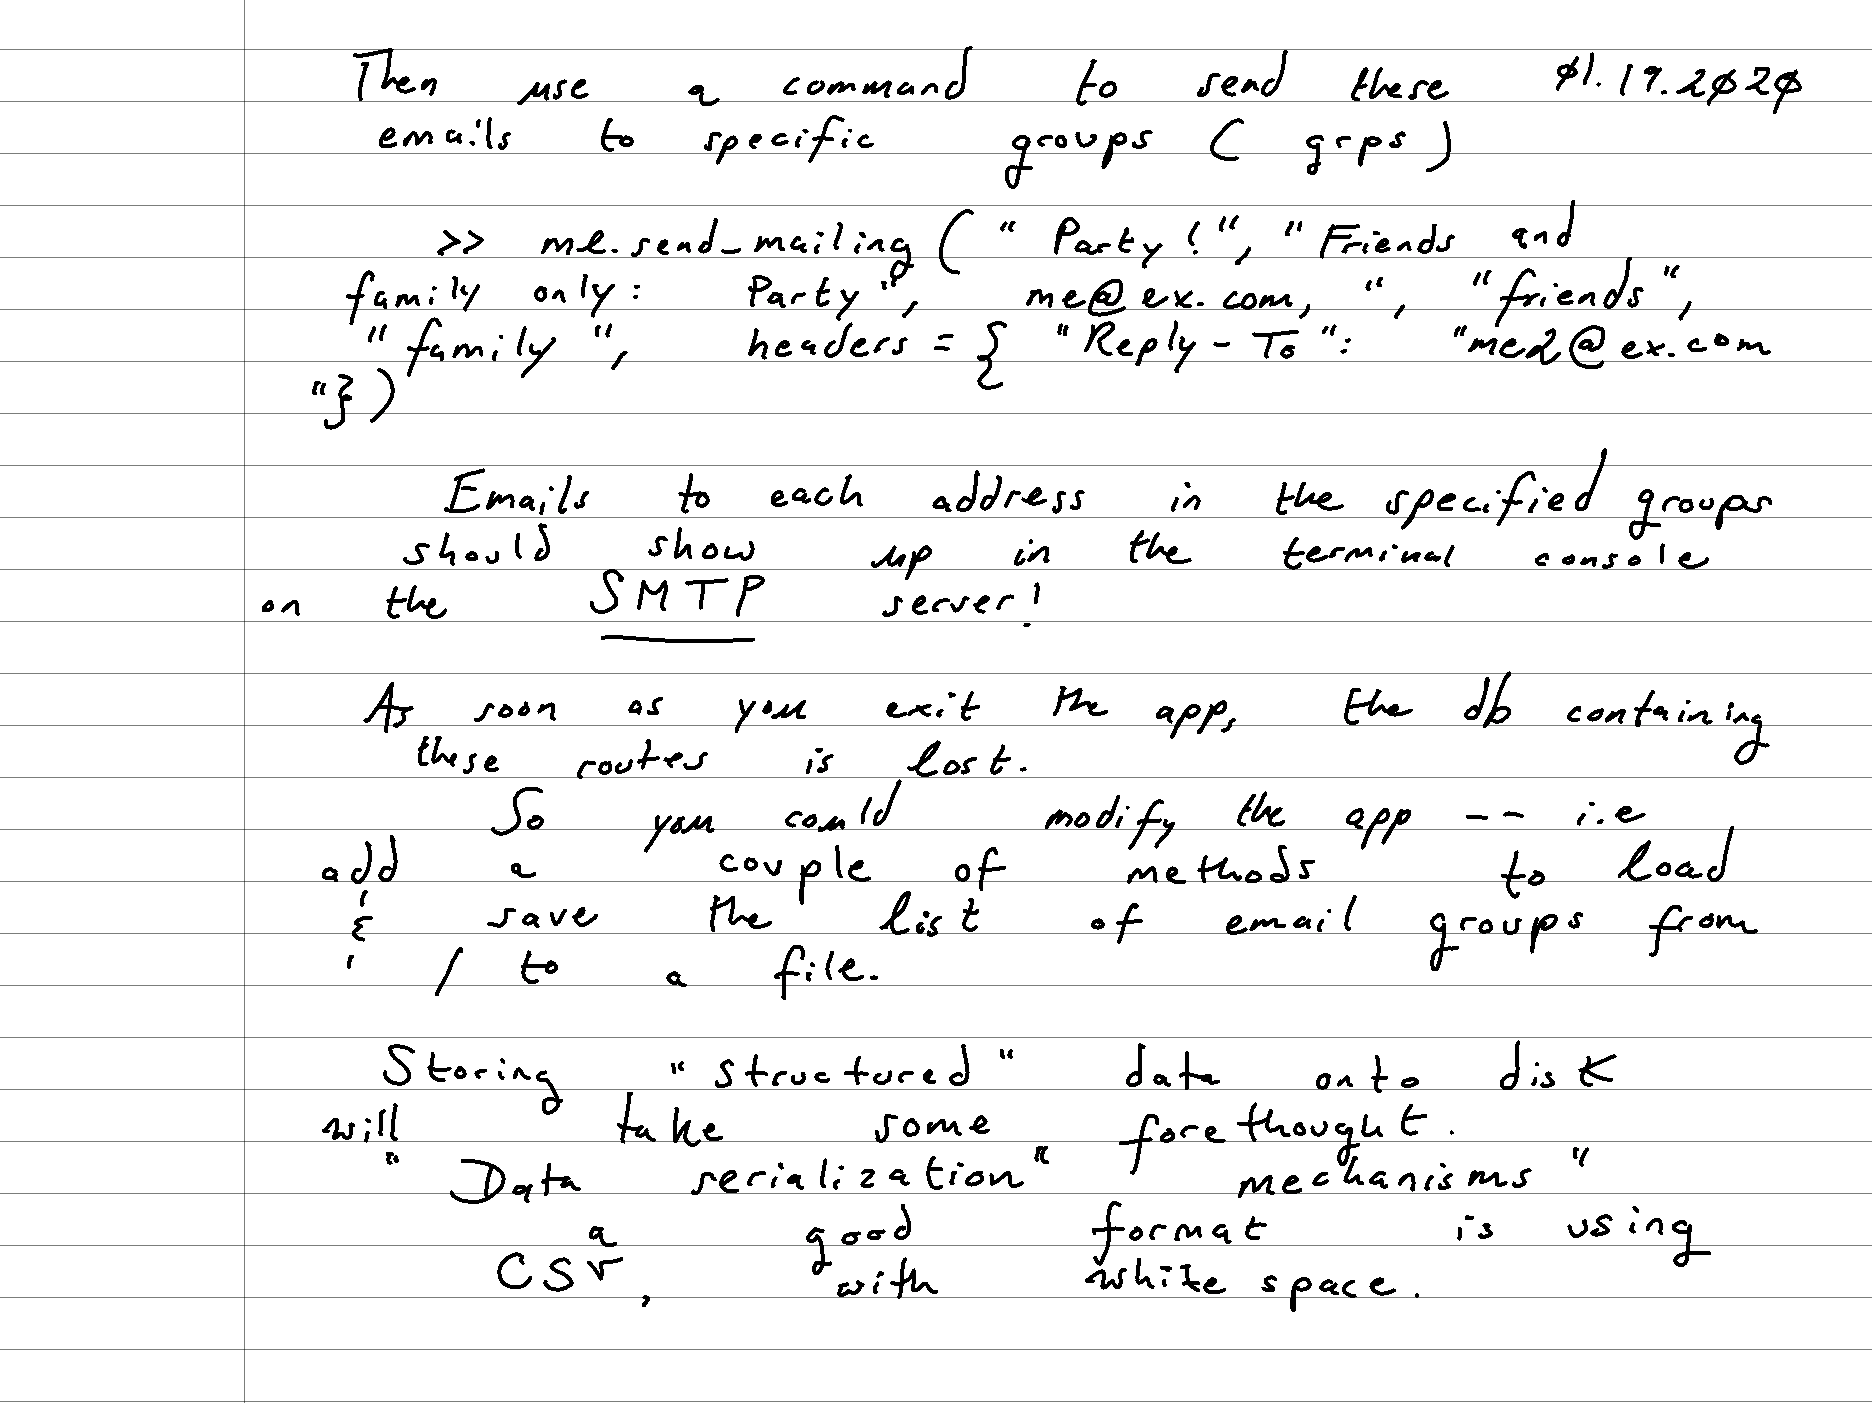 Then use a command to send these 01.19.2020
emails to specific groups ( grps )
>> ml.send_mailing ( " Party ! ", " Friends and
family only: Party ", me@ex.com, ", "friends",
" family ", headers = { "Reply-To": "me2@ex.com
"} )
Emails to each address in the specified groups
should show up in the terminal console
on the SMTP server!
As soon as you exit the app, the db containing
these routes is lost.
So you could modify the app -- i.e
add a couple of methods to load
& save the list of email groups from
/ to a file.
Storing "structured" data onto disk
will take some forethought.
" Data serialization " mechanisms "
a good format is using
CSV, with white space.